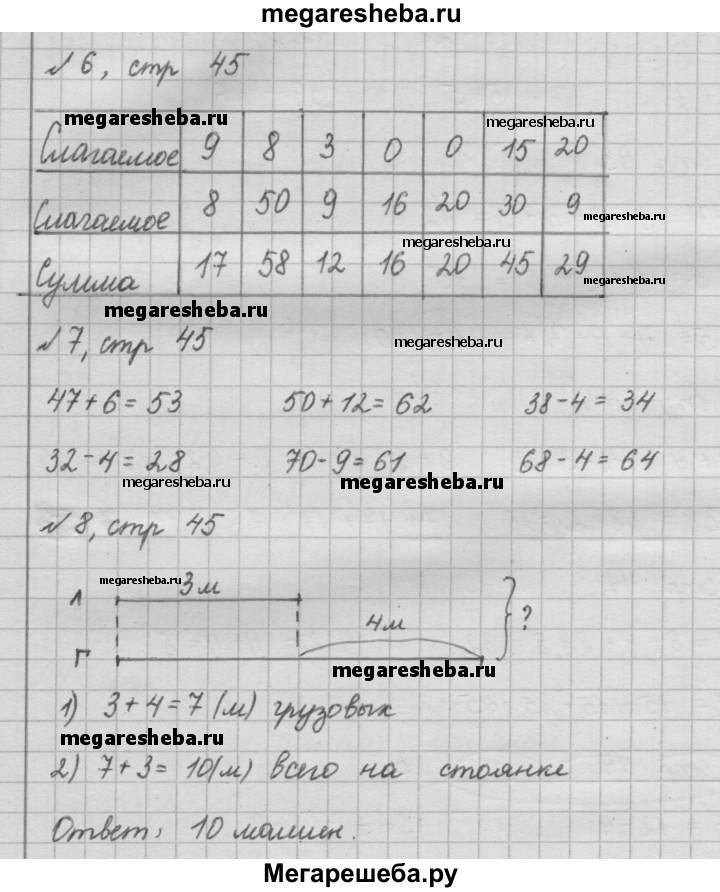 megaresheba.ru
№ 6, стр 45
megaresheba.ru
megaresheba.ru
Слагаемое 9 8 3 0 0 15 20
Слагаемое 8 50 9 16 20 30 9
megaresheba.ru
megaresheba.ru
Сумма 17 58 12 16 20 45 29
megaresheba.ru
megaresheba.ru
№ 7, стр 45
megaresheba.ru
47+6=53 50+12=62 38-4=34
32-4=28 70-9=61 68-4=64
megaresheba.ru
megaresheba.ru
megaresheba.ru
№ 8, стр 45
megaresheba.ru
Л 3м
4м
}?
Г
megaresheba.ru
1) 3+4=7 (м) грузовых
megaresheba.ru
2) 7+3=10(м) всего на стоянке
Ответ: 10 машин.
Мегарешеба.ру